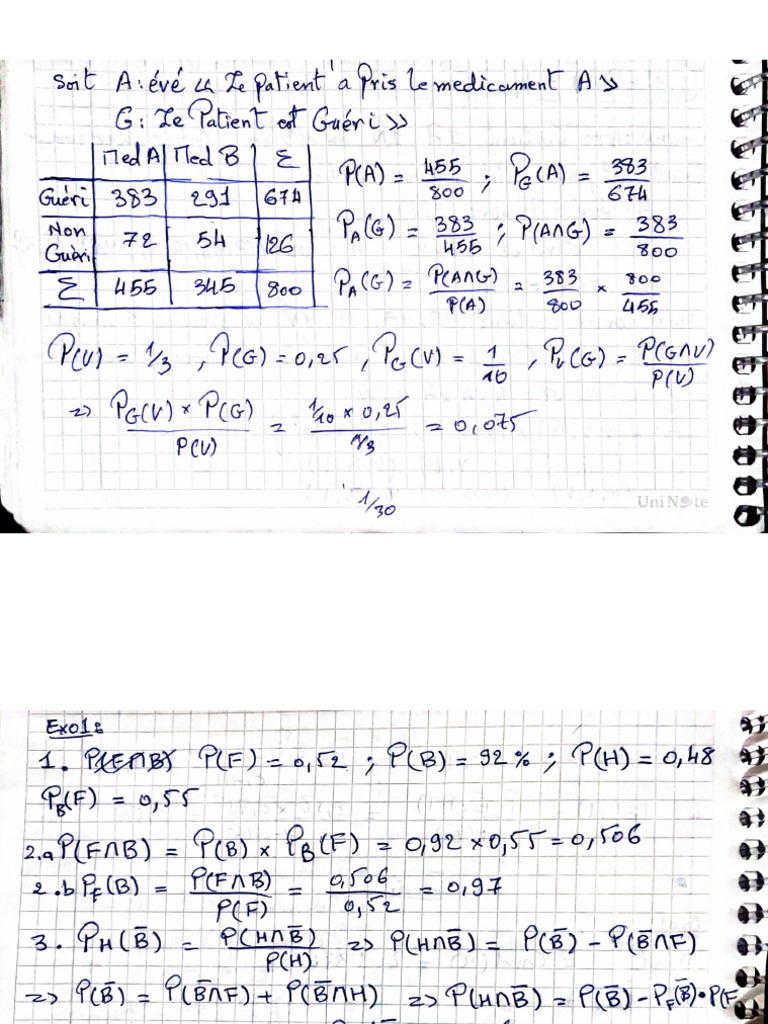 Soit A : évé << Le patient a Pris le medicament A >>
G : Le Patient est Guéri >>
Med A Med B Σ
Guéri 383 291 674
Non Guéri 72 54 126
Σ 455 345 800
P(A) = 455/800 ; P_G(A) = 383/674
P_A(G) = 383/455 ; P(A∩G) = 383/800
P_A(G) = P(A∩G)/P(A) = 383/800 × 800/455
P(V) = 1/3 , P(G) = 0,25 , P_G(V) = 1/10 , P_V(G) = P(G∩V)/P(V)
=> P_G(V) × P(G)/P(V) = 1/10 × 0,25/1/3 = 0,075
1/30
UniNote
Exo1 :
1. P(F∩B) P(F) = 0,52 ; P(B) = 92 % ; P(H) = 0,48
P_B(F) = 0,55
2.a P(F∩B) = P(B) × P_B(F) = 0,92 × 0,55 = 0,506
2.b P_F(B) = P(F∩B)/P(F) = 0,506/0,52 = 0,97
3. P_H(B̄) = P(H∩B̄)/P(H) => P(H∩B̄) = P(B̄) - P(B̄∩F)
=> P(B̄) = P(B̄∩F) + P(B̄∩H) => P(H∩B̄) = P(B̄) - P_F(B̄)·P(F